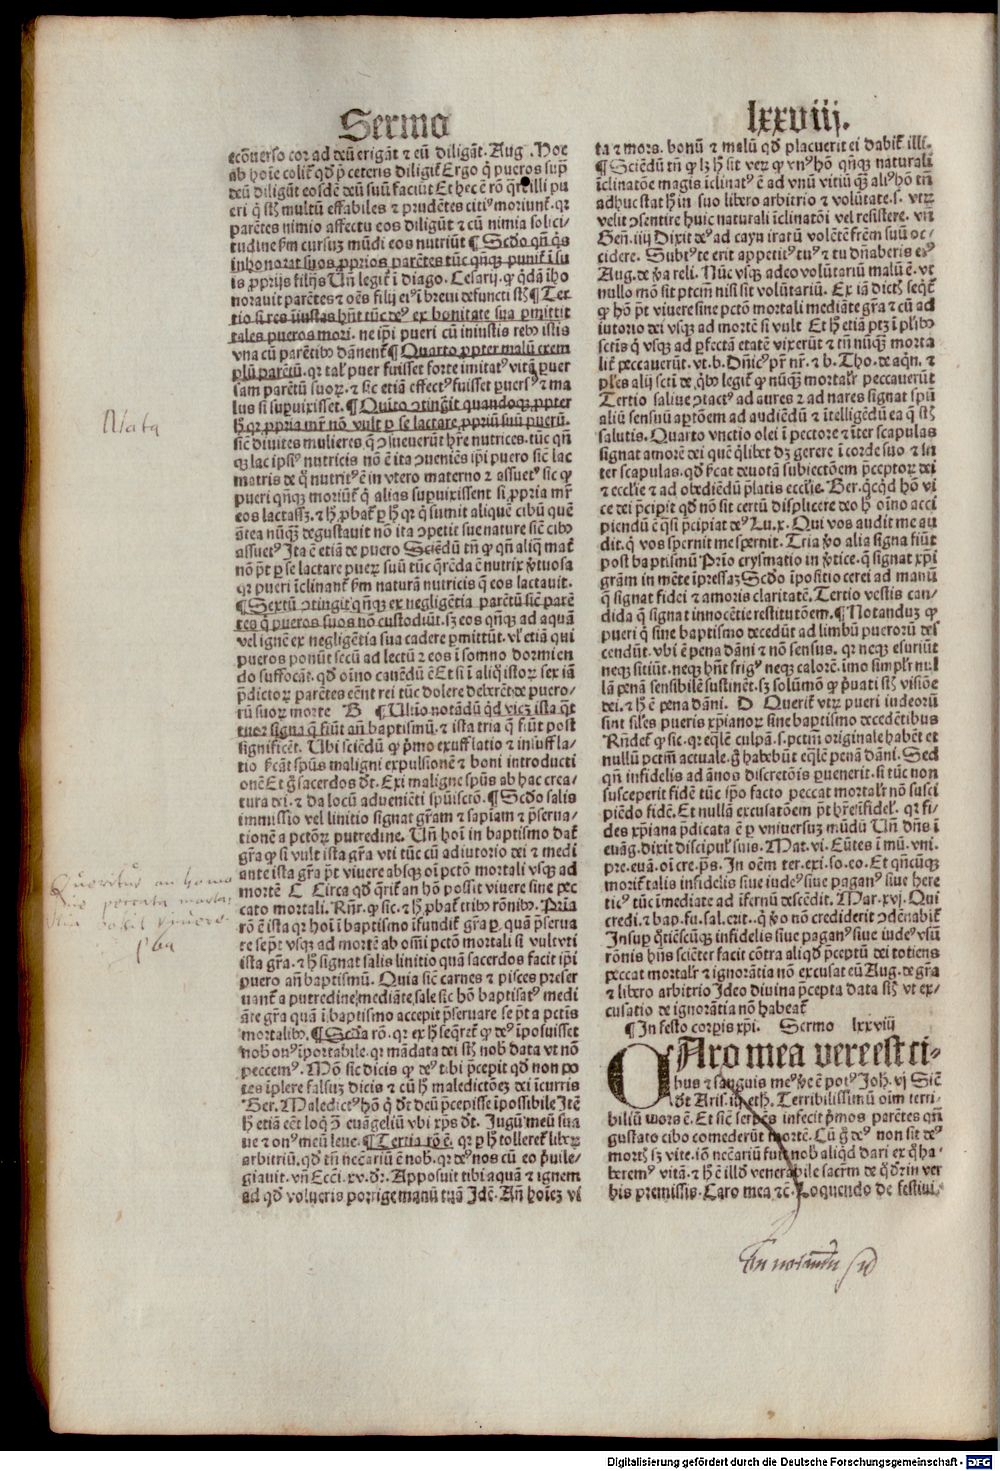 Sermo
ecōuerso cor ad deū erigāt ⁊ eū diligāt. Aug. Hoc
ab hoīe colit̄ qd̄ p̄ ceteris diligit̄ Ergo q̄ pueros sup̄
deū diligūt eosdē deū suū faciūt Et hec ē rō q̄re illi pu
eri q̄ sūt multū effabiles ⁊ prudētes citiꝰ moriunt̄. qꝛ
parētes nimio affectu eos diligūt ⁊ cū nimia solici⸗
tudine ẜm cursuȝ mūdi eos nutriūt ¶ Scd̄o qn̄ q̄s
inhonorat suos ꝓprios parētes tūc qn̄qꝫ punit̄ ī su
is ꝓprijs filijs Un̄ legit̄ ī diago. Cesarij. ꝙ q̄dā iho
norauit parētes ⁊ oēs filij eiꝰ ī breui defuncti sūt ¶ Ter
tio si res iīustas hn̄t tūc deꝰ ex bonitate sua ꝑmittit
tales pueros mori. ne ip̄i pueri cū iniustis rebꝰ istis
vna cū parētibꝰ dānent̄ ¶ Quarto ꝓpter malū exem
plū parētū. qꝛ tal̄ puer fuisset forte imitatꝰ vitā ꝑuer
sam parētū suoꝝ. ⁊ sic etiā effectꝰ fuisset ꝑuersꝰ ⁊ ma
lus si supuixisset. ¶ Quīto ↄtingit quandoqꝫ ꝓpter
h̄ qꝛ ꝓpria mr̄ nō vult ꝑ se lactare ꝓpriū suū puerū.
sic̄ diuites mulieres q̄ ↄsueuerūt hr̄e nutrices. tūc qn̄
qꝫ lac ipsiꝰ nutricis nō ē ita ↄueniēs ip̄i puero sic̄ lac
matris de q̄ nutritꝰ ē in vtero materno ⁊ assuetꝰ sic ꝙ
pueri qn̄qꝫ moriunt̄ q̄ alias supuixissent si ꝓpria mr̄
eos lactassȝ. ⁊ h̄ ꝓbat̄ ꝑ h̄ qꝛ q̄ sumit aliquē cibū quē
ātea nūqȝ degustauit nō ita ↄpetit sue nature sic̄ cibꝰ
assuetꝰ Ita ē etiā de puero Sciēdū tn̄ ꝙ qn̄ aliq̄ mat̄
nō p̄t ꝑ se lactare pueꝝ suū tūc q̄rēda ē nutrix v̓tuosa
qꝛ pueri īclinant̄ ẜm naturā nutricis q̄ eos lactauit.
¶ Sextū ↄtingit qn̄qꝫ ex negligētia parētū sic̄ parē
tes q̄ pueros suos nō custodiūt. sȝ eos qn̄qꝫ ad aquā
vel ignē ex negligētia sua cadere ꝑmittūt. vl̓ etiā qui
pueros ponūt secū ad lectū ⁊ eos ī somno dormien
do suffocāt. qd̄ oīno cauēdū ē Et si ī aliq̄ istoꝝ sex iā
p̄dictoꝝ parētes eēnt rei tūc dolere debrēt de puero⸗
rū suoꝝ morte B ¶ Ultīo notādū qd̄ vicȝ ista q̄t
tuor signa q̄ fiūt an̄ baptismū. ⁊ ista tria q̄ fiūt post
significēt. Ubi sciēdū ꝙ p̄mo exufflatio ⁊ insuffla⸗
tio ẜcāt sp̄us maligni expulsionē ⁊ boni introducti
onē Et g̊ sacerdos d̄t. Exi maligne sp̄us ab hac crea⸗
tura dei. ⁊ da locū aduenieti sp̄uisctō. ¶ Scd̄o salis
immissio vel linitio signat gr̄am ⁊ sapiam ⁊ p̄serua⸗
tionē a pctōꝝ putredine. Un̄ hoī in baptismo dat̄
gr̄a ꝙ si vult ista gr̄a vti tūc cū adiutorio dei ⁊ medi
ante ista gr̄a p̄t viuere absqꝫ oī pctō mortali vsqꝫ ad
mortē C Circa qd̄ q̄rit̄ an hō possit viuere sine pec
cato mortali. Rn̄r. ꝙ sic. ⁊ h̄ ꝓbat̄ tribꝰ rōnibꝰ. Prīa
rō ē ista qꝛ hoī ī baptismo īfundit̄ gr̄a ꝑ quā p̄serua
re sep̄t vsqꝫ ad mortē ab oīi pctō mortali si vult vti
ista gr̄a. ⁊ h̄ signat salis linitio quā sacerdos facit ip̄i
puero an̄ baptismū. Quia sic̄ carnes ⁊ pisces preser
uant̄ a putredine mediāte sale sic hō baptisatꝰ medi
āte gr̄a quā ī baptismo accepit p̄seruare se p̄t a pctīs
mortalibꝰ. ¶ Scd̄a rō. qꝛ ex h̄ seq̄ret̄ ꝙ deꝰ iposuisset
nob̄ onꝰ īportabile. qꝛ mādata dei sūt nob̄ data vt nō
peccemꝰ. Mō sic dicis ꝙ deꝰ tibi p̄cepit qd̄ non po
tes īplere falsuȝ dicis ⁊ cū h̄ maledictōeȝ dei īcurris
Ber. Maledictꝰ hō q̄ d̄t deū p̄cepisse īpossibile Itē
h̄ etiā eēt loq̄ ↄ̄ euāgeliū vbi xp̄s d̄t. Jugū meū sua
ue ⁊ onꝰ meū leue. ¶ Tertia rō ē. qꝛ ꝑ h̄ tolleret̄ liberꝝ
arbitriū. qd̄ tn̄ necāriū ē nob̄. qꝛ deꝰ nos cū eo p̄uile⸗
giauit. vn̄ Ecci. xv. dꝛ. Apposuit tibi aquā ⁊ ignem
ad qd̄ volueris porrige manū tuā Idē. An̄ hoīeȝ vi
lxxviij.
ta ⁊ mors. bonū ⁊ malū qd̄ placuerit ei dabit̄ illi.
¶ Sciēdū tn̄ ꝙ lȝ h̄ sit verꝝ ꝙ vnꝰ hō qn̄qꝫ naturali
īclinatōe magis īclinatꝰ ē ad vnū vitiū qꝫ aliꝰ hō tn̄
adhuc stat h̄ in suo libero arbitrio ⁊ volūtate. s. vtꝝ
velit ↄsentire huic naturali īclinatōi vel resistere. vn̄
Gen̄. iiij Dixit deꝰ ad cayn iratū volētē frēm suū oc⸗
cidere. Subt̓ te erit appetitꝰ tuꝰ ⁊ tu dn̄aberis eiꝰ
Aug. de v̓a reli. Nūc vsqꝫ adeo volūtariū malū ē. vt
nullo mō sit ptcm̄ nisi sit volūtariū. Ex iā dictis seq̄t̄
ꝙ hō p̄t viuere sine pctō mortali mediāte gr̄a ⁊ cū ad
iutorio dei vsqꝫ ad mortē si vult Et h̄ etiā ptȝ ī pl̓ibꝰ
sctīs q̄ vsqꝫ ad ꝑfectā etatē vixerūt ⁊ tn̄ nūqȝ morta
lit̄ peccauerūt. vt. b. Dn̄icꝰ pr̄ nr̄. ⁊ b. Tho. de aq̄n. ⁊
pl̓es alij sctī de q̄bꝰ legit̄ ꝙ nūqȝ mortal̓r peccauerūt
Tertio saliue ↄtactꝰ ad aures ⁊ ad nares signat sp̄ū
aliū sensuū aꝑtōem ad audiēdū ⁊ ītelligēdū ea q̄ sūt
salutis. Quarto vnctio olei ī pectore ⁊ īter scapulas
signat amorē dei quē q̄libet dȝ gerere ī corde suo ⁊ in
ter scapulas. qd̄ ẜcat deuotā subiectōem p̄ceptoꝝ dei
⁊ eccl̓ie ⁊ ad obediēdū p̄latis eccl̓ie. Ber. q̄cqd̄ hō vi
ce dei p̄cipit qd̄ nō sit certū displicere deo h̄ oīno acci
piendū ē q̄si p̄cipiat deꝰ Lu. x. Qui vos audit me au
dit. q̄ vos spernit me spernit. Tria v̓o alia signa fiūt
post baptismū Prīo crysmatio ī v̓tice. q̄ signat xp̄i
gr̄am in mēte īpressaȝ Scd̄o īpositio cerei ad manū
q̄ signat fidei ⁊ amoris claritatē. Tertio vestis can⸗
dida q̄ signat innocētie restitutōem. ¶ Notanduȝ ꝙ
pueri q̄ sine baptismo decedūt ad limbū puerorū des
cendūt. vbi ē pena dāni ⁊ nō sensus. qꝛ neqꝫ esuriūt
neqꝫ sitiūt. neqꝫ hn̄t frigꝰ neqꝫ calorē. imo simpl̓r nul
lā penā sensibilē sustinēt. sȝ solūmō ꝙ p̄uati sūt visiōe
dei. ⁊ h̄ ē pena dāni. D Querit̄ vtꝝ pueri iudeorū
sint siles pueris xp̄ianoꝝ sine baptismo decedētibus
Rn̄det̄ ꝙ sic. qꝛ eq̄lē culpā. s. pctm̄ originale habēt et
nullū pctm̄ actuale. g̊ habebūt eq̄lē penā dāni. Sed
qn̄ infidelis ad ānos discretōis ꝑuenerit. si tūc non
susceperit fidē tūc ip̄o facto peccat mortal̓r nō susci
piēdo fidē. Et nullā excusatōem p̄t hr̄e īfidel̓. qꝛ fi⸗
des xp̄iana p̄dicata ē ꝑ vniuersuȝ mūdū Un̄ dn̄s ī
euāg. dixit discipul̓ suis. Mat. vi. Eūtes ī mū. vni.
pre. euā. oī cre. p̄s. In oēm ter. exi. so. eo. Et qn̄cūqꝫ
morit̄ talis infidelis siue iudeꝰ siue paganꝰ siue here
ticꝰ tūc īmediate ad īfernū descēdit. Mar. xvj. Qui
credi. ⁊ bap. fu. sal. erit. q̄ v̓o nō crediderit ↄdēnabit̄
Insup q̄tiēscūqꝫ infidelis siue paganꝰ siue iudeꝰ vsū
rōnis hn̄s sciēter facit ↄ̄tra aliqd̄ p̄ceptū dei totiens
peccat mortal̓r ⁊ ignorātia nō excusat eū Aug. de gr̄a
⁊ libero arbitrio Ideo diuina p̄cepta data sūt vt ex⸗
cusatio de ignorātia nō habeat̄
¶ In festo corpis xp̄i. Sermo lxxviij
CAro mea vere est ci⸗
bus ⁊ sanguis meꝰ v̓e ē potꝰ Joh. vj Sic̄
d̄t Aris. iij eth. Terribilissimū oīm terri⸗
biliū mors ē. Et sic̄ serpēs infecit p̄mos parētes qn̄
gustato cibo comederūt mortē. Cū g̊ deꝰ non sit deꝰ
mortis sȝ vite. iō necāriū fuit nob̄ aliqd̄ dari ex q̊ ha⸗
beremꝰ vitā. ⁊ h̄ ē illd̄ venerabile sacrm̄ de q̊ dꝛ in ver
bis premissis. Caro mea ⁊c̄. Loquendo de festiui⸗
Nota
Queritur an homo
sine peccato mortali
possit vivere
Digitalisierung gefördert durch die Deutsche Forschungsgemeinschaft - DFG